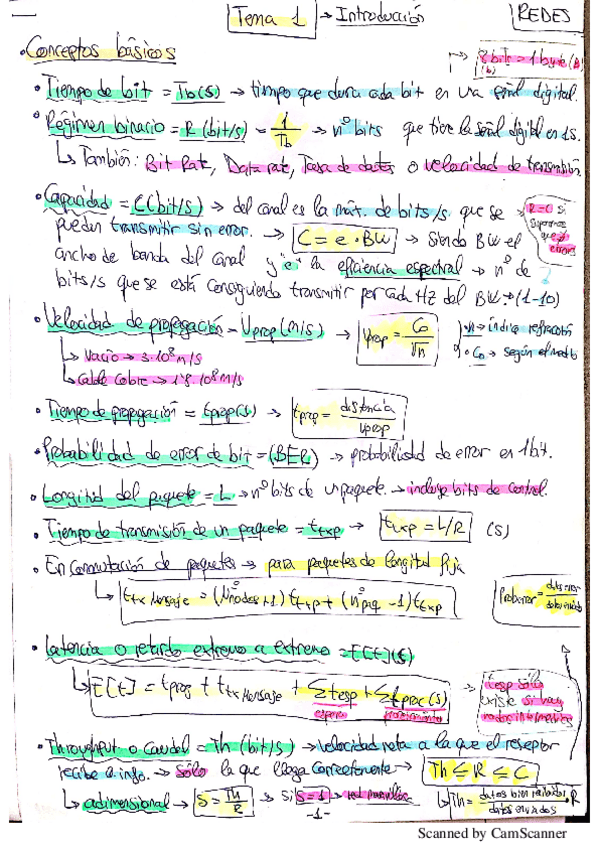 Tema 1 → Introducción REDES
• Conceptos básicos
→ 8 bits = 1 byte (B)
(b)
• Tiempo de bit = Tb(s) → tiempo que dura cada bit en una señal digital.
• Régimen binario = R (bit/s) = 1/Tb → nº bits que tiene la señal digital en 1s.
↳ También: Bit Rate, Data rate, Tasa de datos o velocidad de transmisión.
• Capacidad = C(bit/s) → del canal es la máx. de bits/s. que se
pueden transmitir sin error. → C = e · BW → Siendo BW el
ancho de banda del canal y "e" la eficiencia espectral → nº de
bits/s que se está consiguiendo transmitir por cada Hz del BW → (1-10)
R=C si
errores
• Velocidad de propagación = Vprop (m/s) → Vprop = Co/√n
n → índice refracción
• Co → según el medio
↳ Vacío → 3·10⁸ m/s
↳ Cable Cobre →
• Tiempo de propagación = tprop(s) → tprop = distancia/Vprop
• Probabilidad de error de bit = (BER) → probabilidad de error en 1 bit.
• Longitud del paquete = L → nº bits de un paquete. → incluye bits de control.
• Tiempo de transmisión de un paquete = ttxp → ttxp = L/R (s)
• En conmutación de paquetes → para paquetes de longitud fija
↳ ttx Mensaje = (Nºnodos+1) ttxp + (nºpaq - 1) ttxp
Prob error =
• Latencia o retardo extremo a extremo = E[t](s)
↳ E[t] = tprog + ttx Mensaje + Σtesp + Σtproc (s)
espera procesamiento
→ tesp sólo
existe si hay
nodos intermedios
• Throughput o Caudal = Th (bit/s) → velocidad neta a la que el receptor
recibe la info. → sólo la que llega correctamente → Th ≤ R ≤ C
↳ adimensional → S = Th/R → si S=1 →
↳ Th = datos bien recibidos/datos enviados · R
-1-
Scanned by CamScanner